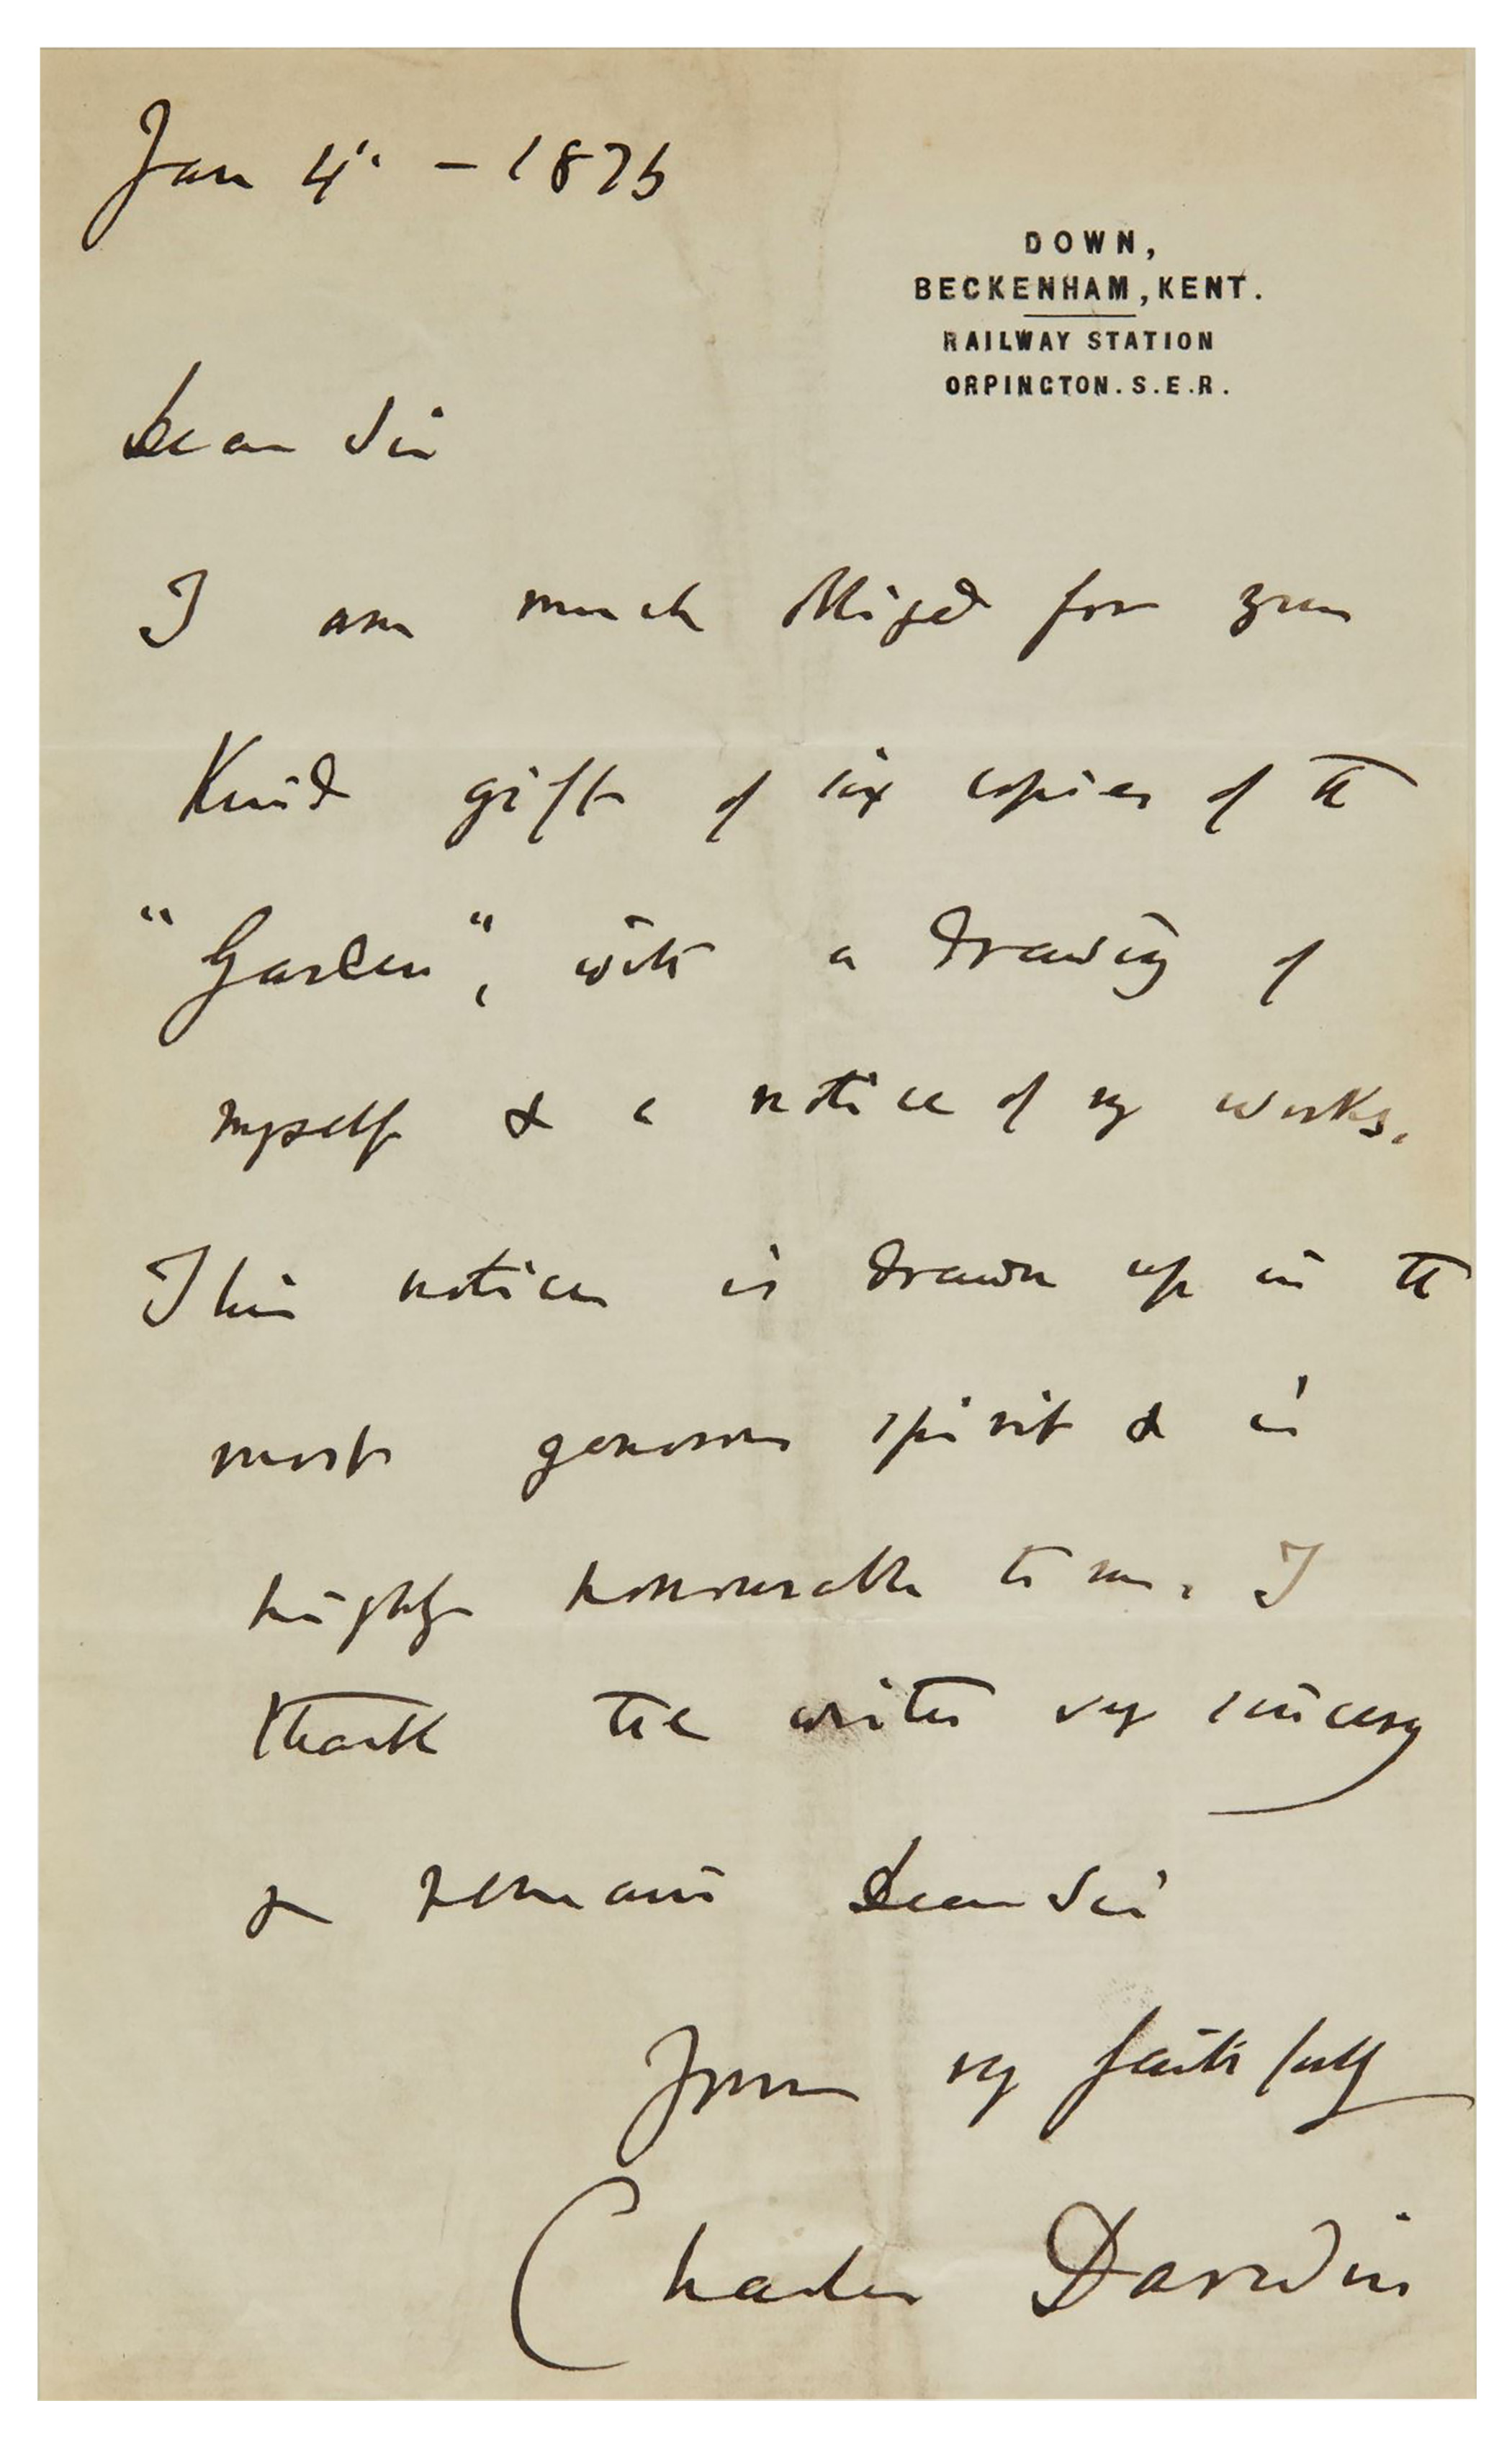 Jan 4. — 1876
DOWN,
BECKENHAM, KENT.
RAILWAY STATION
ORPINGTON. S.E.R.
Dear Sir
I am much obliged for your
kind gift of six copies of the
"Garden", with a drawing of
myself & a notice of my works.
This notice is drawn up in the
most generous spirit & is
highly honourable to me. I
thank the writer very sincerely
& remain Dear Sir
Yours very faithfully
Charles Darwin